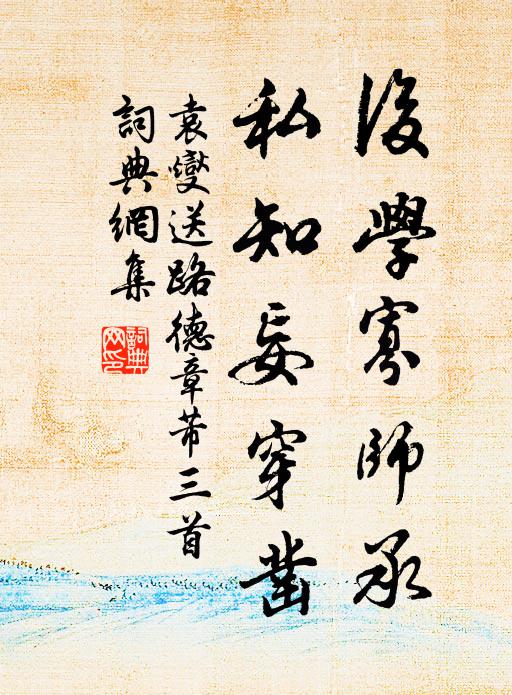 後學寡師承
私知妄穿鑿
袁燮送路德章芾三首
詞典網集
詞典网印